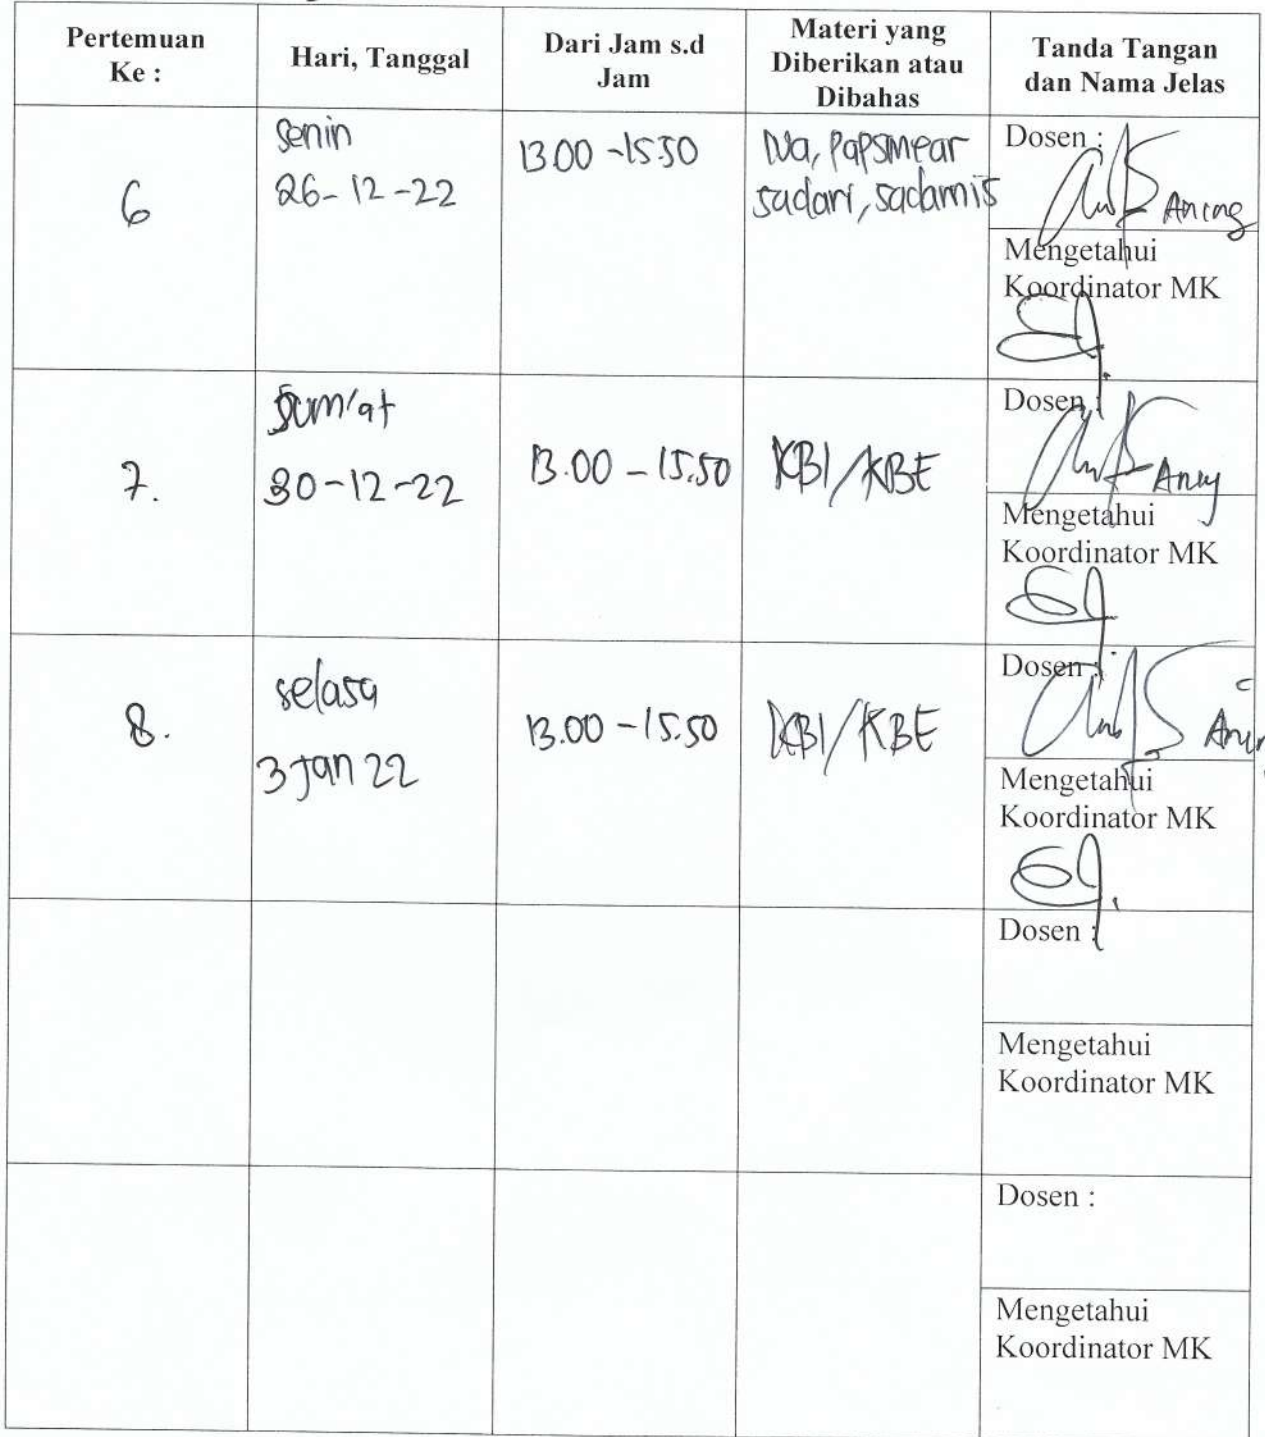 Pertemuan
Ke :
Hari, Tanggal
Dari Jam s.d
Jam
Materi yang
Diberikan atau
Dibahas
Tanda Tangan
dan Nama Jelas
6
Senin
26-12-22
13.00 - 15.50
Iva, Papsmear
sadari, sadarnis
Dosen :
Aning
Mengetahui
Koordinator MK
7.
Jum'at
30-12-22
13.00 - 15.50
KBI/KBE
Dosen :
Aning
Mengetahui
Koordinator MK
8.
selasa
3 Jan 22
13.00 - 15.50
KBI/KBE
Dosen :
Mengetahui
Koordinator MK
Dosen :
Mengetahui
Koordinator MK
Dosen :
Mengetahui
Koordinator MK